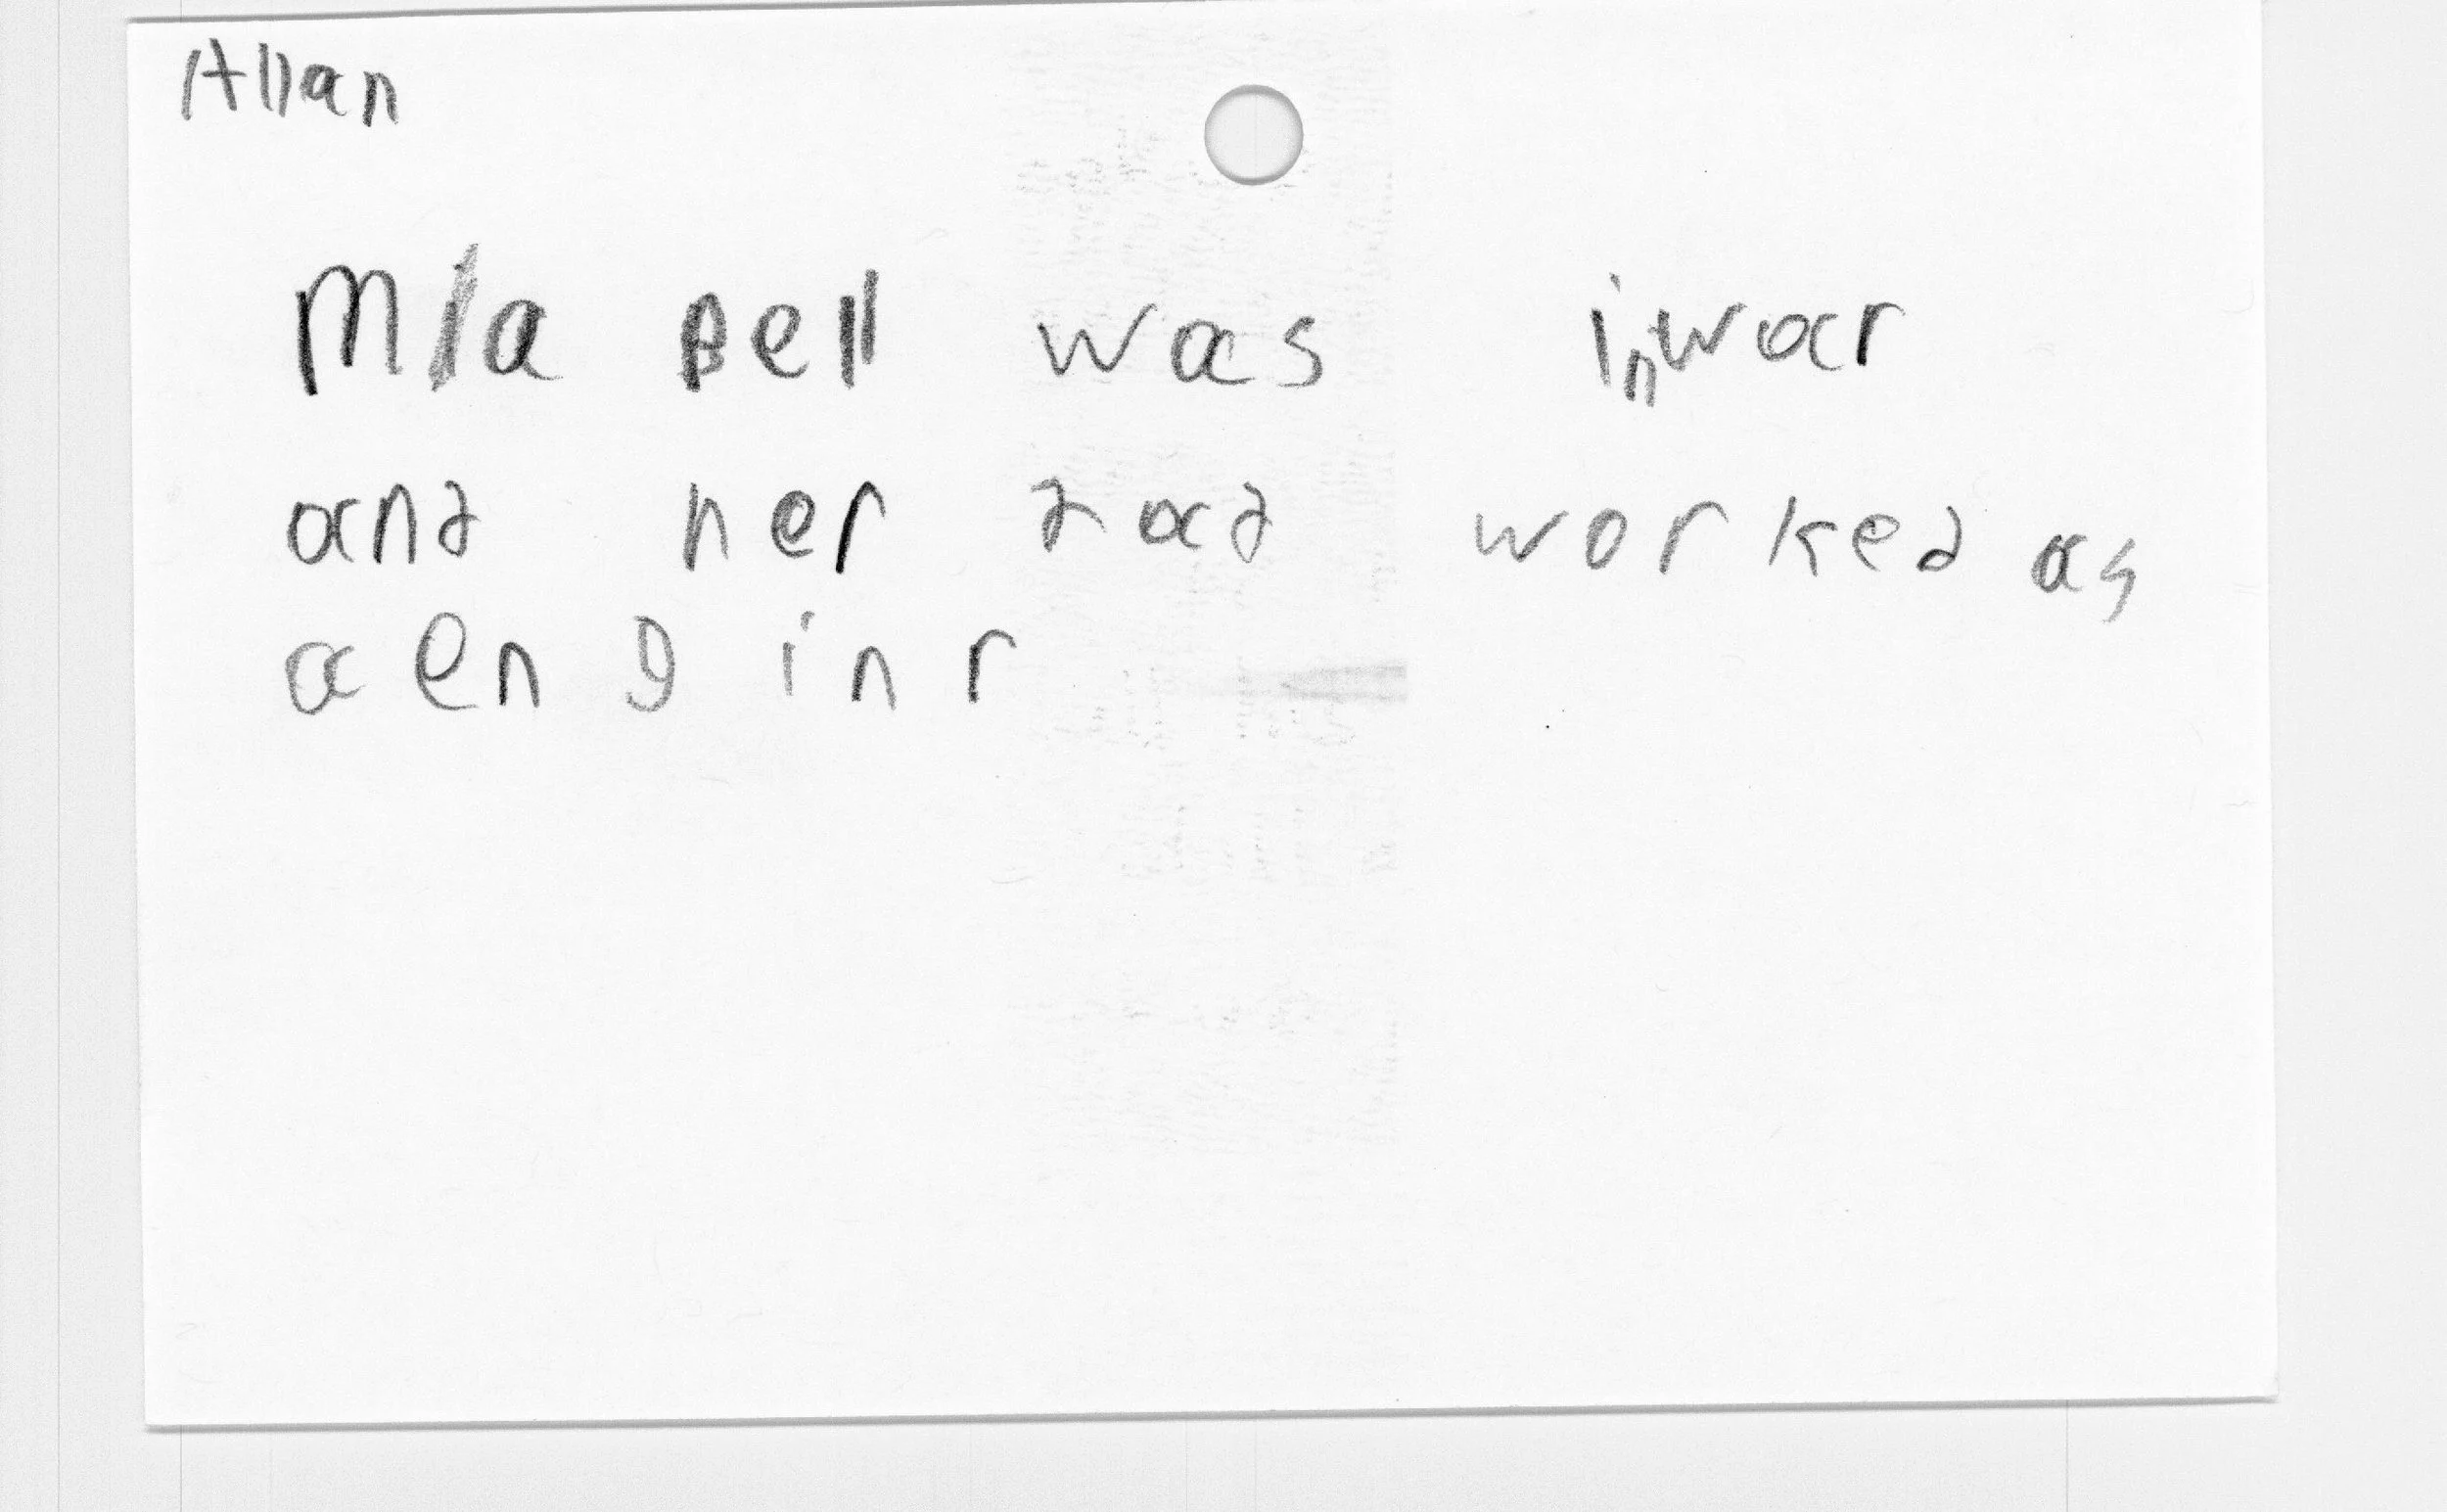 Allan
Mia Bell was in war
and her dad worked as
a enginr